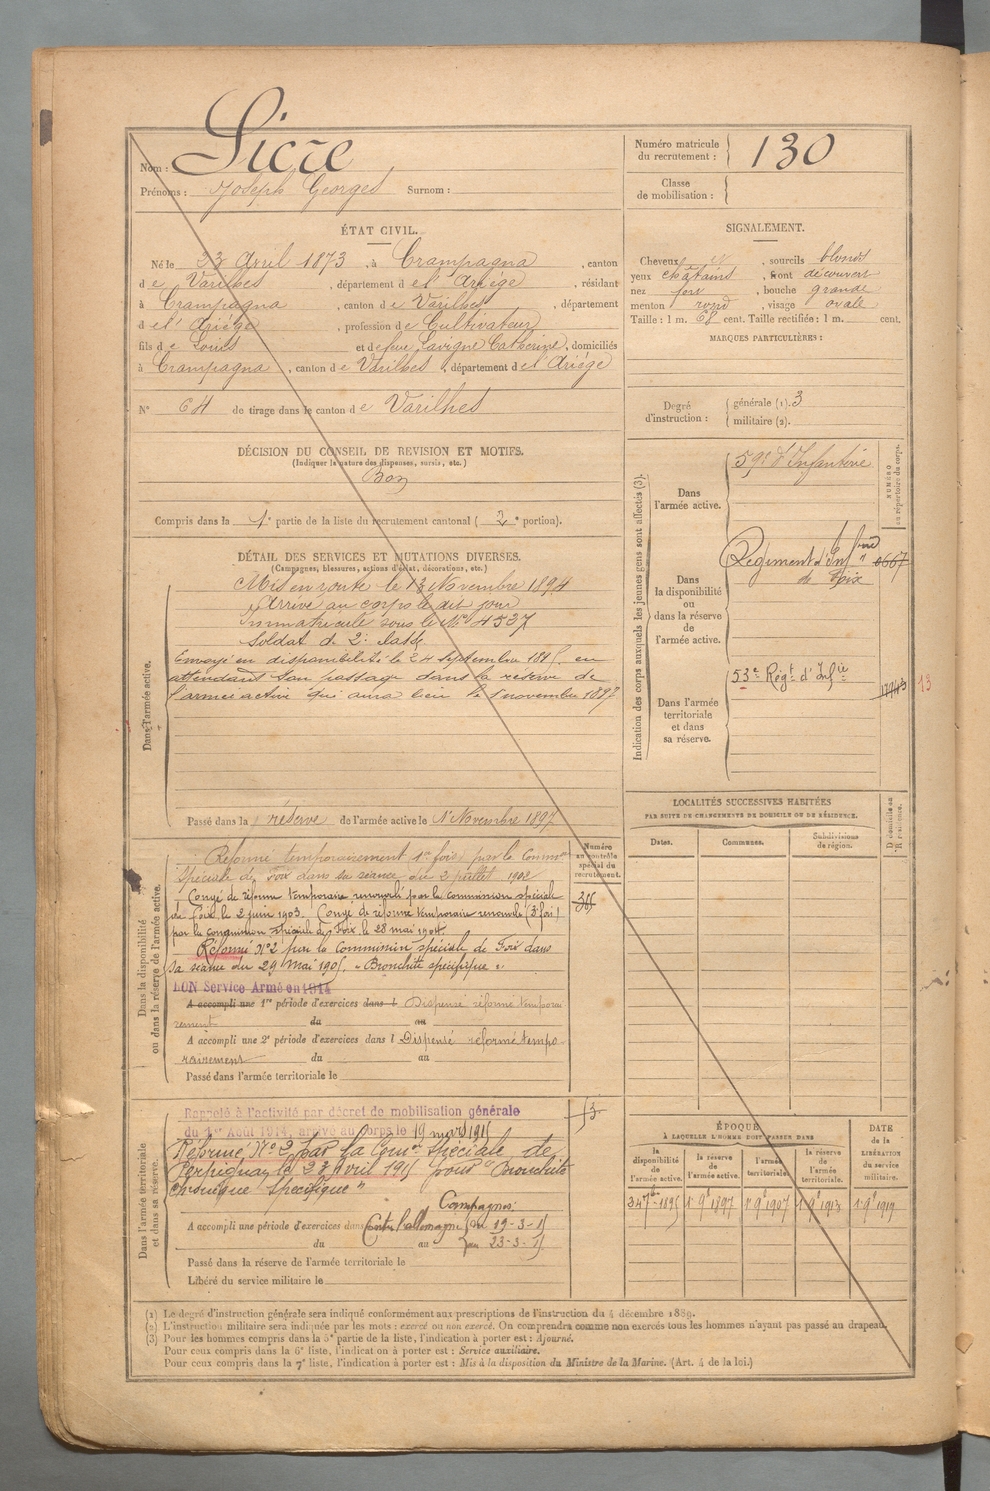 Nom : Sicre
Prénoms : Joseph Georges Surnom :
Numéro matricule du recrutement : 130
Classe de mobilisation :
ÉTAT CIVIL.
Né le 23 Avril 1873, à Crampagna, canton
de Varilhes, département de l'Ariége, résidant
à Crampagna, canton de Varilhes, département
de l'Ariége, profession de Cultivateur
fils de Louis et de feue Lavigne Catherine, domiciliés
à Crampagna, canton de Varilhes, département de l'Ariége
N° 64 de tirage dans le canton de Varilhes
SIGNALEMENT.
Cheveux, sourcils blonds
yeux chatains, front découvert
nez fort, bouche grande
menton rond, visage ovale
Taille : 1 m. 68 cent. Taille rectifiée : 1 m. cent.
MARQUES PARTICULIÈRES :
Degré d'instruction : générale (1). 3
militaire (2).
DÉCISION DU CONSEIL DE REVISION ET MOTIFS.
(Indiquer la nature des dispenses, sursis, etc.)
Bon
Compris dans la 1e partie de la liste du recrutement cantonal ( 2e portion).
DÉTAIL DES SERVICES ET MUTATIONS DIVERSES.
(Campagnes, blessures, actions d'éclat, décorations, etc.)
Dans l'armée active.
Mis en route le 13 Novembre 1894
Arrivé au corps le dit jour
Immatriculé sous le No 4537
Soldat de 2e classe
Envoyé en disponibilité le 24 septembre 1895 en
attendant son passage dans la réserve de
l'armée active qui aura lieu le 1 novembre 1897
Passé dans la réserve de l'armée active le 1er Novembre 1897
Indication des corps auxquels les jeunes gens sont affectés (3).
NUMÉRO au répertoire du corps.
Dans l'armée active.
59e d'Infanterie
Dans la disponibilité ou dans la réserve de l'armée active.
Régiment d'Infrie
de Foix
Dans l'armée territoriale et dans sa réserve.
53e Régt d'Infie
13
LOCALITÉS SUCCESSIVES HABITÉES
PAR SUITE DE CHANGEMENTS DE DOMICILE OU DE RÉSIDENCE.
Dates. Communes. Subdivisions de région.
D domicile ou R résidence.
Numéro au contrôle spécial du recrutement.
Dans la disponibilité ou dans la réserve de l'armée active.
Réformé temporairement 1re fois par la Common
Spéciale de Foix dans sa séance du 2 juillet 1902
Congé de réforme temporaire renouvelé par la commission spéciale
de Foix le 2 juin 1903. Congé de réforme temporaire renouvelé (3e fois)
par la commission spéciale de Foix le 28 mai 1904.
Réformé No 2 par la Commission spéciale de Foix dans
sa séance du 29 Mai 1905. "Bronchite spécifique".
BON Service Armé en 1914
A accompli une 1re période d'exercices dans l Dispensé réformé temporai
rement du au
A accompli une 2e période d'exercices dans l Dispensé réformé tempo
rairement du au
Passé dans l'armée territoriale le
Dans l'armée territoriale et dans sa réserve.
Rappelé à l'activité par décret de mobilisation générale
du 1er Août 1914, arrivé au corps le 19 mars 1915
Réformé No 2 par la Comon Spéciale de
Perpignan le 23 Avril 1915 pour "Bronchite
chronique spécifique"
Campagnes:
A accompli une période d'exercices dans Contre l'allemagne du 19-3-15
du au au 23-3-15
Passé dans la réserve de l'armée territoriale le
Libéré du service militaire le
ÉPOQUE
À LAQUELLE L'HOMME DOIT PASSER DANS
la disponibilité de l'armée active. la réserve de l'armée active. l'armée territoriale. la réserve de l'armée territoriale.
DATE de la LIBÉRATION du service militaire.
1r 9e 1897 1r 9e 1907 1r 9e 1913 1r 9e 1919
(1) Le degré d'instruction générale sera indiqué conformément aux prescriptions de l'instruction du 4 décembre 1889.
(2) L'instruction militaire sera indiquée par les mots : exercé ou non exercé. On comprendra comme non exercés tous les hommes n'ayant pas passé au drapeau.
(3) Pour les hommes compris dans la 5e partie de la liste, l'indication à porter est : Ajourné.
Pour ceux compris dans la 6e liste, l'indication à porter est : Service auxiliaire.
Pour ceux compris dans la 7e liste, l'indication à porter est : Mis à la disposition du Ministre de la Marine. (Art. 4 de la loi.)